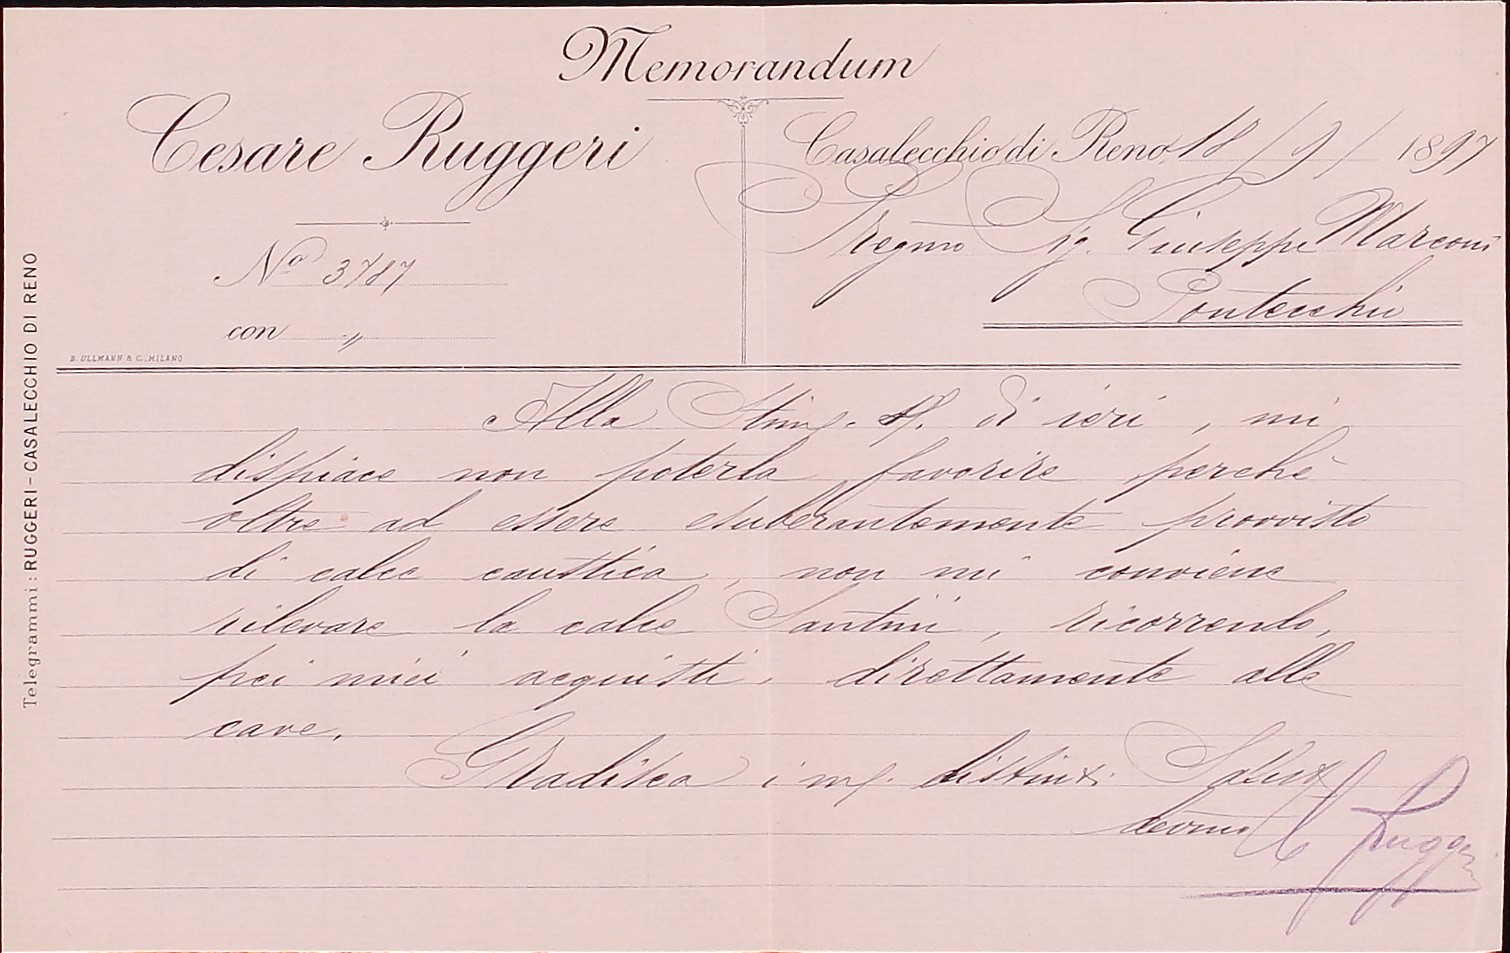 Memorandum
Cesare Ruggeri
Casalecchio di Reno 18/9/1897
Pregmo Sig. Giuseppe Marconi
Pontecchio
No 3787
con "
B. ULLMANN & C. MILANO
Telegrammi: RUGGERI - CASALECCHIO DI RENO
Alla Stim. di ieri, mi
dispiace non poterla favorire perchè
oltre ad essere esuberantemente provvisto
di calce caustica, non mi conviene
rilevare la calce Santini, ricorrendo,
pei miei acquisti, direttamente alle
cave.
Gradisca i mf. distinti Saluti
devmo C Ruggeri